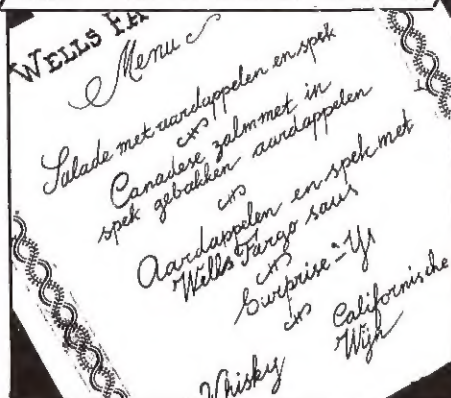 WELLS FA
Menu
Salade met aardappelen en spek
Canadese zalm met in
spek gebakken aardappelen
Aardappelen en spek met
Wells Fargo saus
Surprise-Ys
Whisky
Californische
Wijn